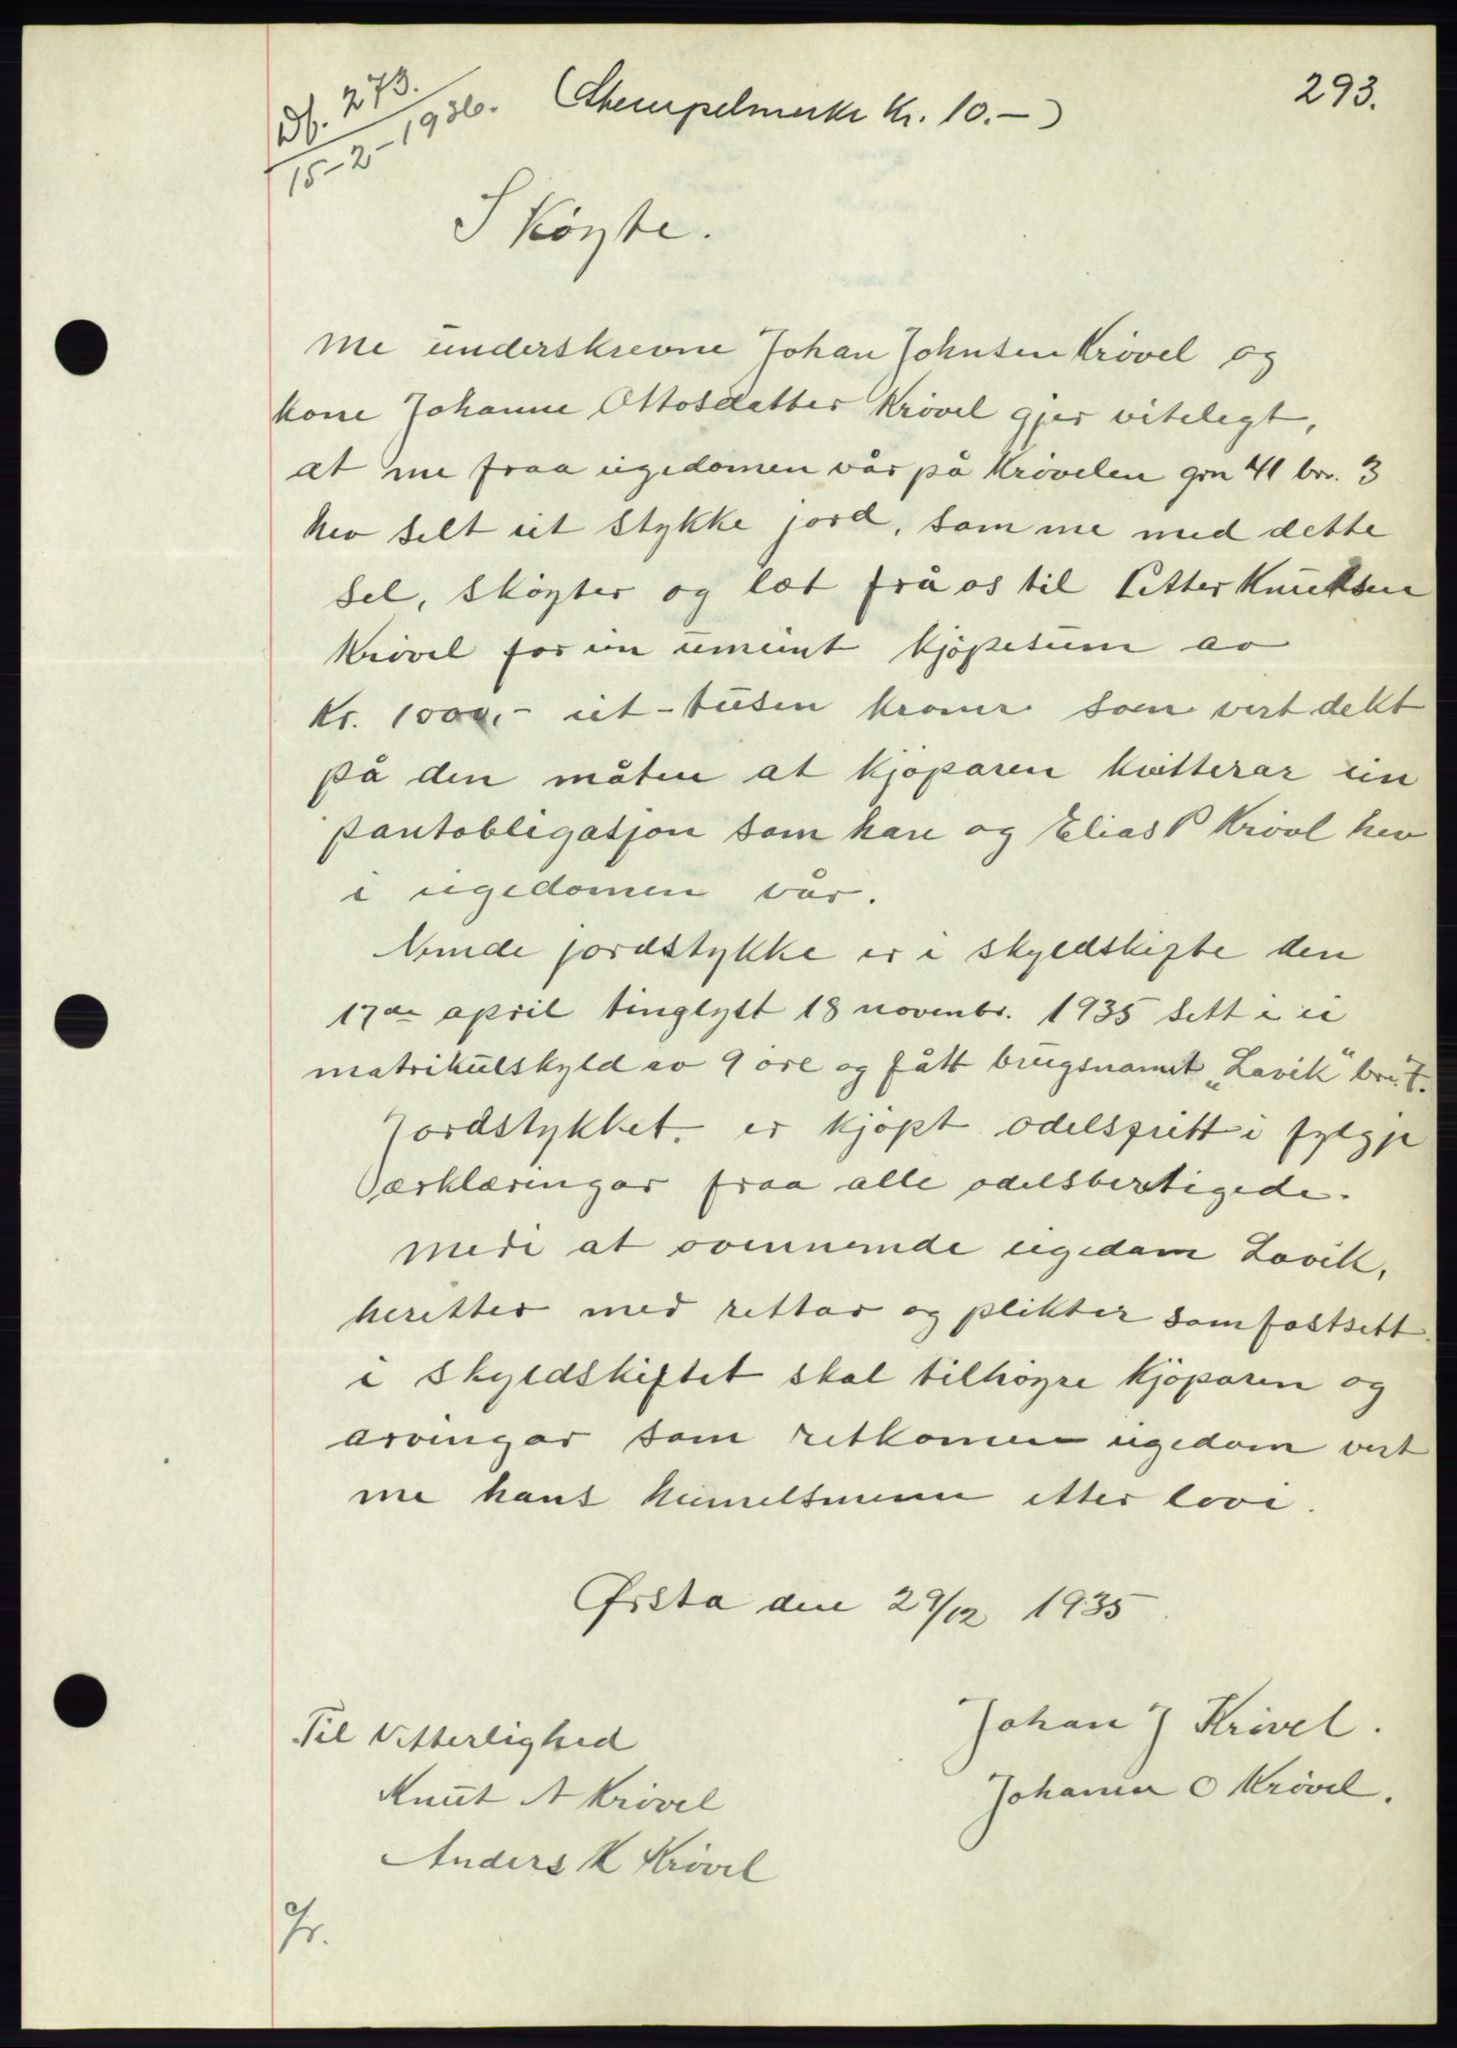 Db. 273.
15-2-1936.
(Stempelmerke kr. 10.-)
293.
Skøyte.
Me underskrevne Johan Johnsen Krøvel og
kone Johanne Ottosdatter Krøvel gjer vitelegt,
at me fraa eigedomen vår på Krøvelen grn 41 br. 3
hev selt eit stykke jord, som me med dette
sel, skøyter og læt frå os til Petter Knutsen
Krøvel for ein umeint kjøpesum av
Kr. 1000,- eit-tusen kroner som vert dekt
på den måten at kjøparen kvitterar ein
pantobligasjon som han og Elias P Krøvl hev
i eigedomen vår.
Nemde jordstykke er i skyldskifte den
17de april tinglyst 18 novenbr. 1935 sett i ei
matrikulskyld av 9 øre og fått brugsnamet "Lavik" br. 7.
Jordstykket er kjøpt odelsfritt i fylgje
ærklæringar fraa alle odelsberetigede.
Medi at ovennemde eigedom Lavik,
heretter med rettar og plikter som fastsett
i skyldskiftet skal tilhøyre kjøparen og
arvingar som retkomen eigedom vert
me hans heimelsmenn etter lovi.
Ørsta den 29/12 1935
Til Vitterlighed
Johan J Krøvel.
Knut A Krøvel
Johanna O Krøvel.
Anders K Krøvel